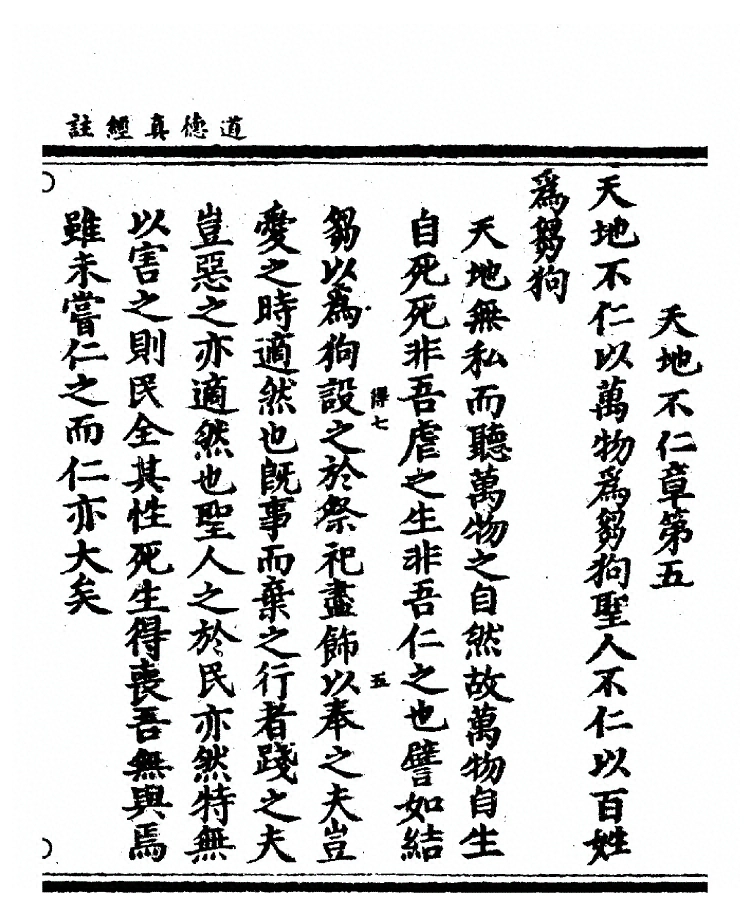 道德真經註
天地不仁章第五
天地不仁以萬物為芻狗聖人不仁以百姓
為芻狗
天地無私而聽萬物之自然故萬物自生
自死死非吾虐之生非吾仁之也譬如結
得七
五
芻以為狗設之於祭祀盡飾以奉之夫豈
愛之時適然也既事而棄之行者踐之夫
豈惡之亦適然也聖人之於民亦然特無
以害之則民全其性死生得喪吾無與焉
雖未嘗仁之而仁亦大矣